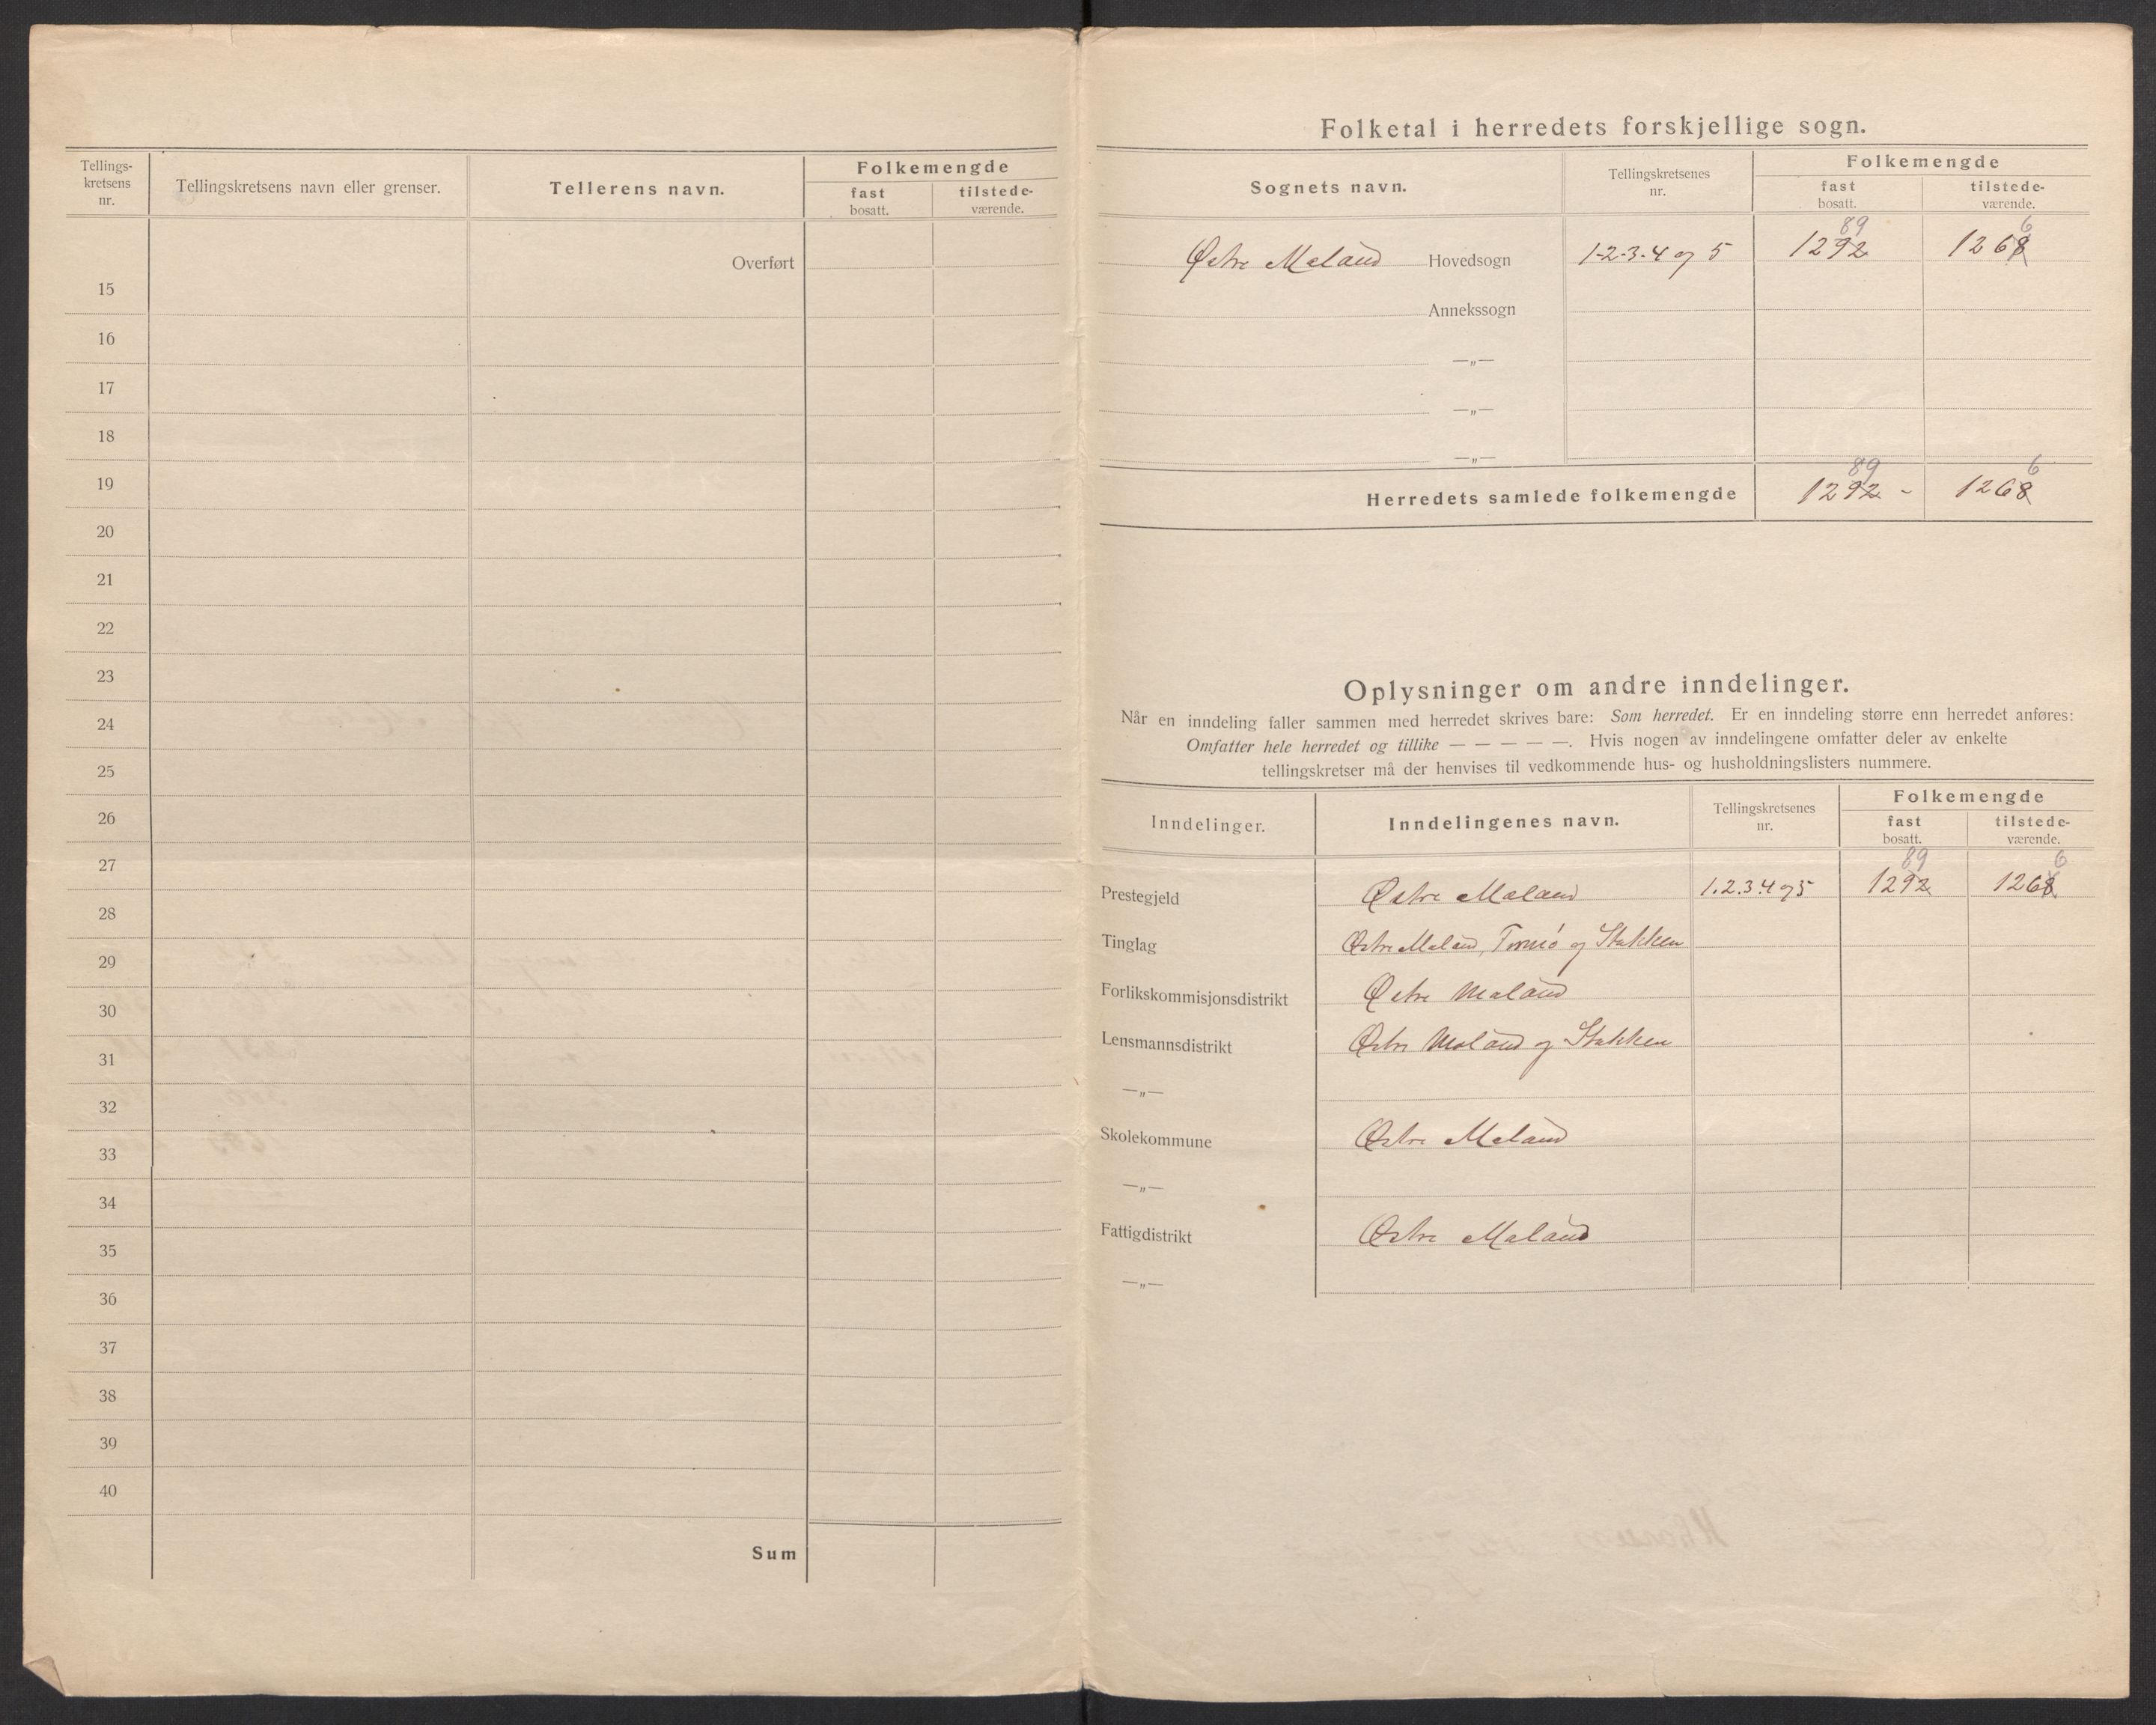 Tellings-
kretsens
nr.
Tellingskretsens navn eller grenser.
Tellerens navn.
Folkemengde
fast
bosatt.
tilstede-
værende.
Overført
15
16
17
18
19
20
21
22
23
24
25
26
27
28
29
30
31
32
33
34
35
36
37
38
39
40
Sum
Folketal i herredets forskjellige sogn.
Sognets navn.
Tellingskretsenes
nr.
Folkemengde
fast
bosatt.
tilstede-
værende.
89 6
Østre Moland Hovedsogn 1-2-3-4 og 5 1292 1268
Annekssogn
—„—
—„—
—„—
89 6
Herredets samlede folkemengde 1292 - 1268
Oplysninger om andre inndelinger.
Når en inndeling faller sammen med herredet skrives bare: Som herredet. Er en inndeling større enn herredet anføres:
Omfatter hele herredet og tillike — — — — —. Hvis nogen av inndelingene omfatter deler av enkelte
tellingskretser må der henvises til vedkommende hus- og husholdningslisters nummere.
Inndelinger.
Inndelingenes navn.
Tellingskretsenes
nr.
Folkemengde
fast
bosatt.
tilstede-
værende.
89 6
Prestegjeld Østre Moland 1.2.3.4 og 5 1292 1268
Tinglag Østre Moland, Tromø og Stokken
Forlikskommisjonsdistrikt Østre Moland
Lensmannsdistrikt Østre Moland og Stokken
—„—
Skolekommune Østre Moland
—„—
Fattigdistrikt Østre Moland
—„—